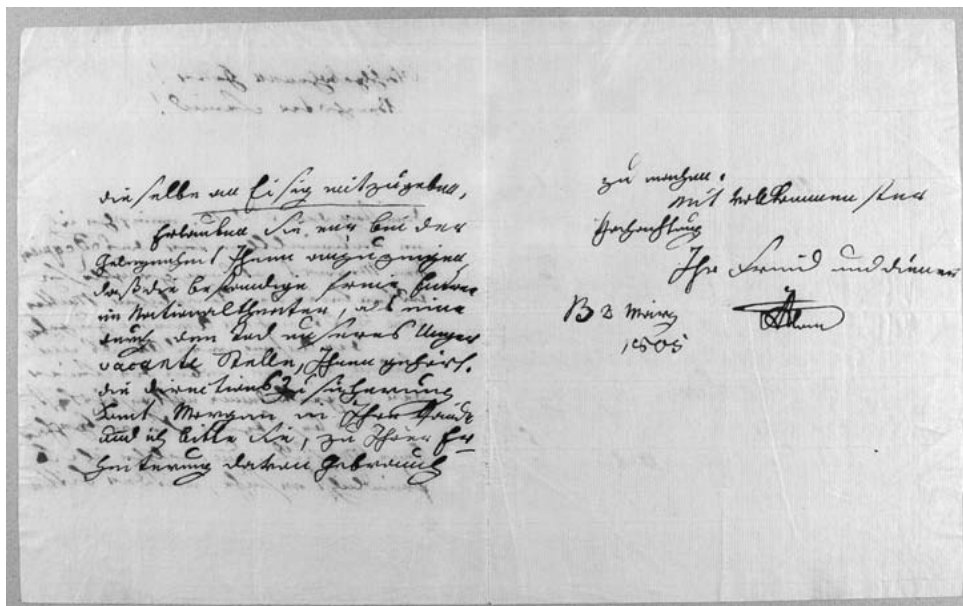 dieselbe an Eisig mitzugeben.
Erlauben Sie, mir bei der
Gelegenheit Ihnen anzuzeigen
daß die beständige freie Entree
im Nationaltheater, als eine
durch den Tod unseres Unger
vacante Stelle, Ihnen gehört.
die Directions Zusicherung
komt Morgen in Ihre Hände
und ich bitte Sie, zu Ihrer Er=
heiterung davon Gebrauch
zu machen.
Mit vollkommenster
Hochachtung
Ihr Freund und diener
B 2 März
1805